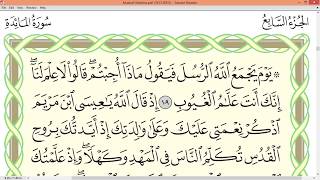 الجُزْءُ السَّابِعُ
سُورَةُ المَائِدَةِ
۞ يَوْمَ يَجْمَعُ ٱللَّهُ ٱلرُّسُلَ فَيَقُولُ مَاذَآ أُجِبْتُمْ ۖ قَالُوا۟ لَا عِلْمَ لَنَآ ۖ
إِنَّكَ أَنتَ عَلَّٰمُ ٱلْغُيُوبِ ١٠٩ إِذْ قَالَ ٱللَّهُ يَٰعِيسَى ٱبْنَ مَرْيَمَ
ٱذْكُرْ نِعْمَتِى عَلَيْكَ وَعَلَىٰ وَٰلِدَتِكَ إِذْ أَيَّدتُّكَ بِرُوحِ
ٱلْقُدُسِ تُكَلِّمُ ٱلنَّاسَ فِى ٱلْمَهْدِ وَكَهْلًا ۖ وَإِذْ عَلَّمْتُكَ